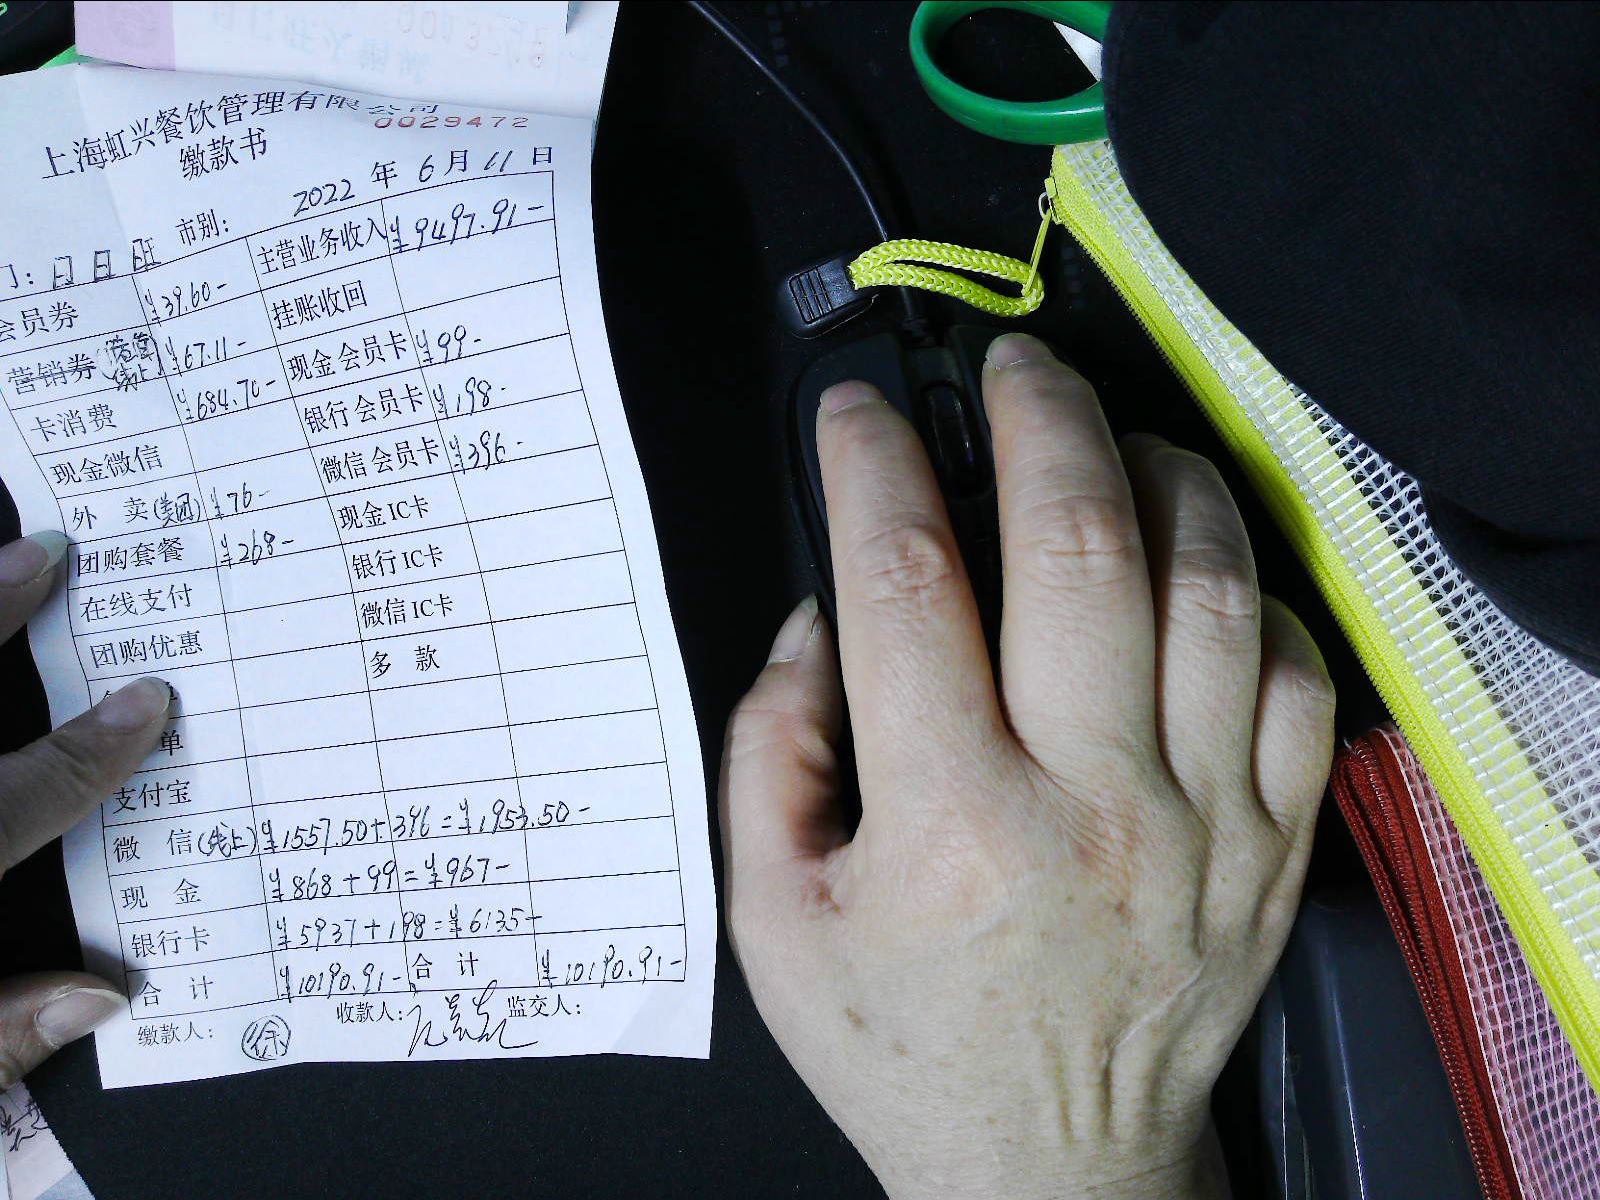 上海虹兴餐饮管理有限公司
0029472
缴款书
2022 年 6 月 11 日
门: 日 日 班 市别:
会员券 ¥39.60- 主营业务收入 ¥9497.91-
营销券 线上 ¥67.11- 挂账收回
卡消费 ¥684.70- 现金会员卡 ¥99-
现金微信 银行会员卡 ¥198-
外 卖(美团) ¥76- 微信会员卡 ¥396-
团购套餐 ¥268- 现金IC卡
在线支付 银行IC卡
团购优惠 微信IC卡
多 款
单
支付宝
微 信(线上) ¥1557.50+396=¥1953.50-
现 金 ¥868+99=¥967-
银行卡 ¥5937+198=¥6135-
合 计 ¥10190.91- 合 计 ¥10190.91-
缴款人: 徐 收款人: 监交人: